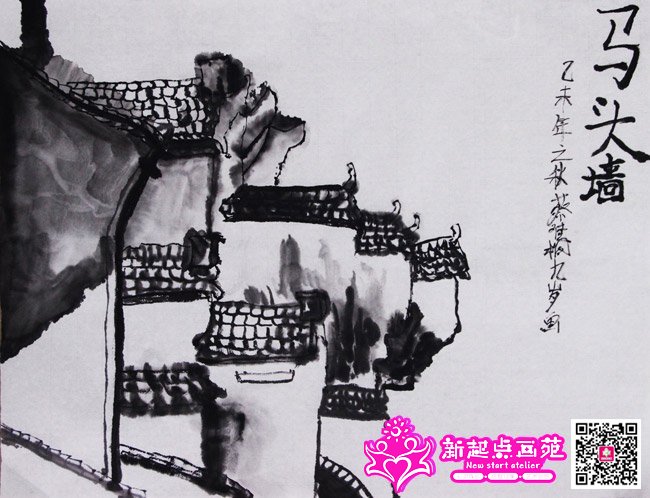 马头墙
乙未年之秋 蔡骐桐九岁画
新起点画苑
New start atelier